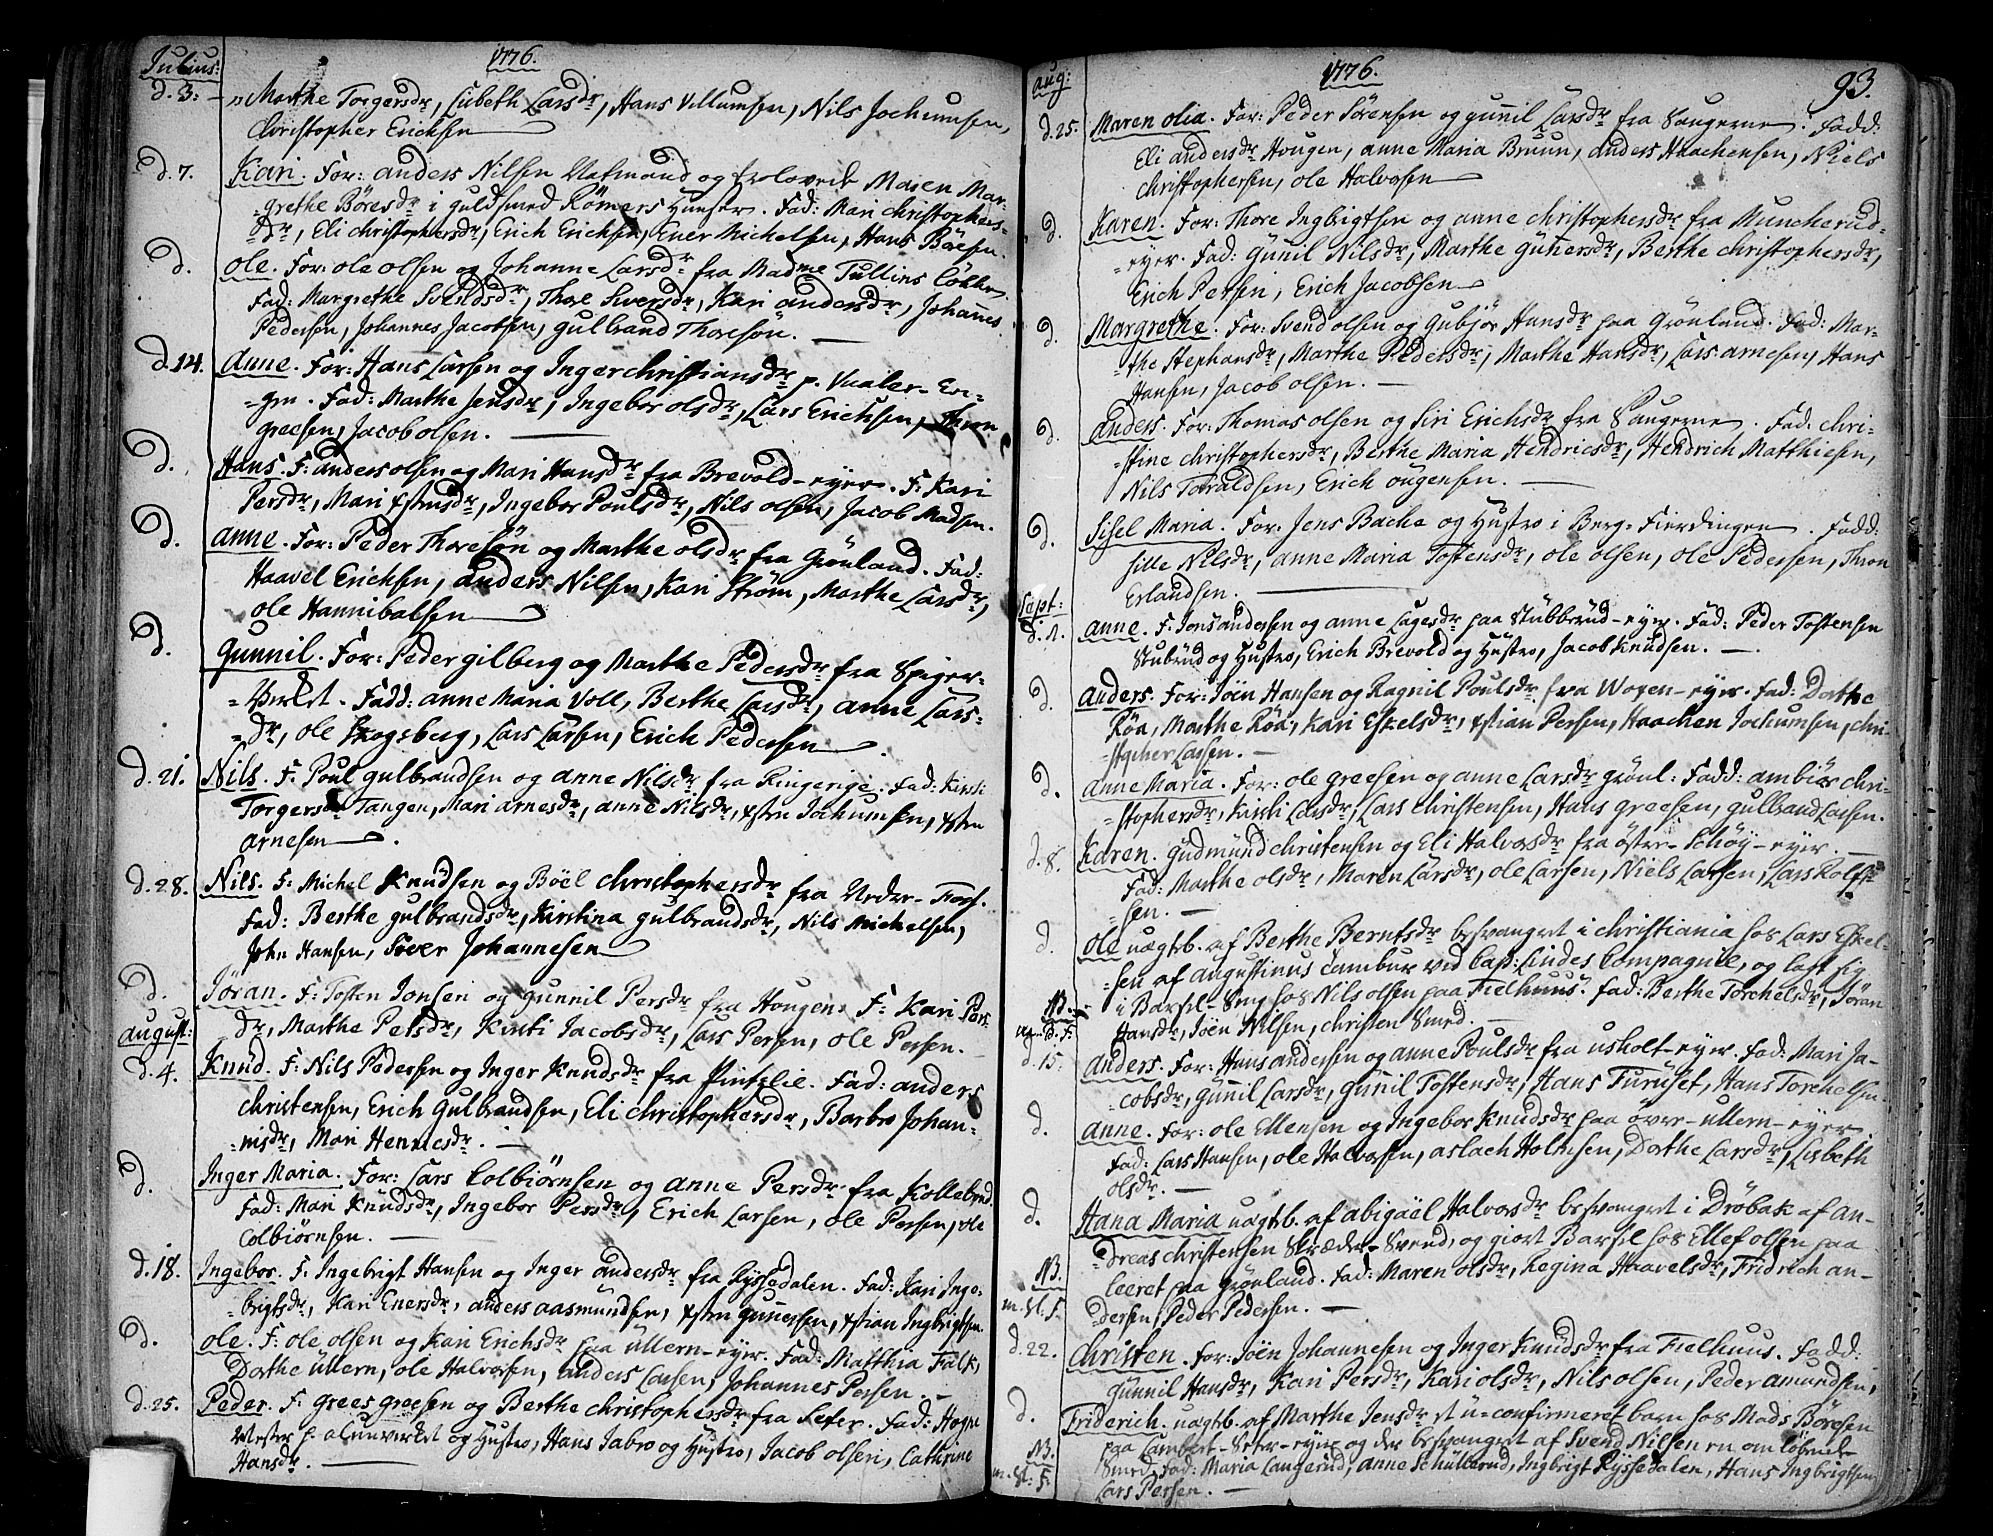 Julius: 1776.
d. 3: Marthe Torgersdr, Lisbeth Larsdr, Hans Villumsen, Nils Jochumsen,
Christopher Erichsen
d. 7. Kari. For: anders Nilsen Natmand og trolovede Maren Mar-
grethe Böresdr i guldsmed Römers Huuser. Fad: Mari Christophers-
dr, Eli Christophersdr, Erich Erichsen, Ener Michelsen, Hans Böresen.
d. Ole. For: ole olsen og Johanne Larsdr fra Madme Tullins Lökke.
Fad: Margrethe Svendsdr, Thore Siversdr, Kari andersdr, Johannes
Pedersen, Johannes Jacobsen, gulbrand Thoresön.
d. 14. Anne. For: Hans Larsen og Inger Christiansdr p. Vaaler-En-
gen. Fad: Marthe Jensdr, Ingebor olsdr, Lars Erichsen, Thron
greesen, Jacob olsen.
d. Hans. F: anders olsen og Mari Hansdr fra Brevold-eyer. F: Kari
Persdr, Mari xstensdr, Ingebor Poulsdr, Nils olsen, Jacob Madsen.
d. Anne. For: Peder Thoresön og Marthe olsdr fra Grönland. Fad:
Haavel Erichsen, anders Nilsen, Kari Ström, Marthe Larsdr,
ole Hannibalsen
d. Gunnil. For: Peder gilberg og Marthe Pedersdr fra Spiger-
-Verket. Fadd: anne Maria Voll, Berthe Larsdr, anne Lars-
-dr, ole Skogsberg, Lars Larsen, Erich Pedersen
d. 21. Nils. F. Poul gulbrandsen og anne Nilsdr fra Ringerige. Fad: Kirsti
Torgersdr Tangen, Mari arnesdr, anne Nilsdr, xsten Jochumsen, xsten
arnesen.
d. 28. Nils. F: Michel Knudsen og Böel Christophersdr fra Nedre-Foss.
Fad: Berthe gulbrandsdr, Kirstina gulbrandsdr, Nils Michelsen,
John Hansen, Siver Johannesen
d. Jöran. F: Tosten Jonsen og gunnil Persdr fra Hougen. F: Kari Pers-
dr, Marthe Persdr, Kirsti Jacobsdr, Lars Persen, ole Persen.
august:
d. 4. Knud. F: Nils Pedersen og Inger Knudsdr fra Pintzlie. Fad: anders
Christensen, Erich Gulbrandsen, Eli Christophersdr, Barbro Johan-
-nisdr, Mari Henricsdr.
d. Inger Maria. For: Lars Colbiörnsen og anne Persdr fra Kollebond.
Fad: Mari Knudsdr, Ingebor Persdr, Erich Larsen, ole Persen, ole
Colbiörnsen.
d. 18. Ingebor. F: Ingebrigt Hansen og Inger andersdr fra Ryssedalen. Fad: Kari Inge-
-brigtsdr, Kari Enersdr, anders aasmundsen, xsten gunnersen, xstian Ingbrigtsen.
d. ole. F: ole olsen og Kari Erichsdr paa Ullern-eyer. Fad: Matthia Falk,
Dorthe Ullern, ole Halvorsen, anders Larsen, Johannes Persen.
d. 25. Peder. F. grees greesen og Berthe Christophersdr fra Seter. Fad: Hogne
Wester p. alunverket og Hustro, Hans Jabro og Hustro, Jacob olsen, Cathrine
Hansdr.
aug: 1776. 93.
d. 25. Maren olia. For: Peder Sörensen og gunnil Larsdr fra Saugerne. Fadd:
Eli andersdr Hougen, anne Maria Bruun, anders Haachensen, Niels
Christophersen, ole Halvorsen
d. Karen. For: Thore Ingbrigtsen og anne Christophersdr fra Muncherud-
-eyer. Fad: Gunnil Nilsdr, Marthe Gunnersdr, Berthe Christophersdr,
Erich Persen, Erich Jacobsen
d. Margrethe. For: Svend olsen og Gubjör Hansdr paa Grönland. Fad: Mar-
-the Stephansdr, Marthe Pedersdr, Marthe Hansdr, Lars arnesen, Hans
Hansen, Jacob olsen.
d. anders. For: Thomas olsen og Siri Erichsdr fra Saugerne. Fad: Chri-
-stine Christophersdr, Berthe Maria Hendricsdr, Hendrich Matthiesen,
Nils Toraldsen, Erich ougensen.
d. Sisel Maria. For: Jens Bache og Hustro i Berg-Fierdingen. Fadd:
Sille Nilsdr, anne Maria Tostensdr, ole olsen, ole Pedersen, Thron
Erlandsen.
Sept:
d. 1. anne. F. Jens andersen og anne Lagesdr paa Stubberud-eyer. Fad: Peder Tostensen
Stubrud og Hustro, Erich Brevold og Hustro, Jacob Knudsen.
d. anders. For: Jöen Hansen og Ragnil Poulsdr fra Woxen-eyer. Fad: Dorthe
Röa, Marthe Röa, Kari Eskelsdr, xstian Persen, Haachen Jochumsen, Chri-
-stopher Larsen.
d. Anne Maria. For: ole greesen og anne Larsdr grönl: Fadd: ambiör Chri-
-stophersdr, Kirsti Larsdr, Lars Christensen, Hans greesen, gulbrand Larsen.
d. 8. Karen. Gudmund Christensen og Eli Halvorsdr fra östre-Schöy-eyer.
Fad: Marthe olsdr, Maren Larsdr, ole Larsen, Niels Larsen, Lars Rolf-
-sen.
d. ole uægtb. af Berthe Berntsdr besvangret i Christiania hos Lars Eskel-
-sen af augustinus Tambur ved Cap: Lindes Compagnie, og lagt sig
i Barsel-Seng hos Nils olsen paa Fielhuus. Fad: Berthe Torchelsdr, Jöran
NB. Hansdr, Jöen Nilsen, Christen Smed.
d. 15. anders. For: Hans andersen og anne Poulsdr fra usholt-eyer. Fad: Mari Ja-
-cobsdr, Gunnil Larsdr, Gunnil Tostensdr, Hans Furuset, Hans Torchelsen.
d. anne. For: ole Ellensen og Ingebor Knudsdr paa över-ullern-eyer
Fad: Lars Hansen, ole Halvorsen, aslach Holmsen, Dorthe Larsdr, Lisbeth
olsdr.
d. Hana Maria uægtb. af abigaël Halvorsdr besvangret i Dröbak af an-
dreas Christensen Skræder-Svend, og giort Barsel hos Ellef olsen paa
NB. Leeret paa Grönland. Fad: Maren olsdr, Regina Haavelsdr, Fridrich an-
m. sl. F. dersen, Peder Pedersen.
d. 22. Christen. For: Jöen Johannesen og Inger Knudsdr fra Fielhuus. Fadd:
Gunnil Hansdr, Kari Persdr, Kari olsdr, Nils olsen, Peder amundsen.
d. Friderich. uægtb. af Marthe Jensdr et u-confirmeret barn hos Mads Böresen
NB. paa Lambert-Seter-eyer og der besvangret af Svend Nilsen en omlöbende
m. sl. F. Smed. Fad: Maria Langerud, anne Schullerud, Ingbrigt Ryssedalen, Hans Ingbrigtsen,
Lars Persen.